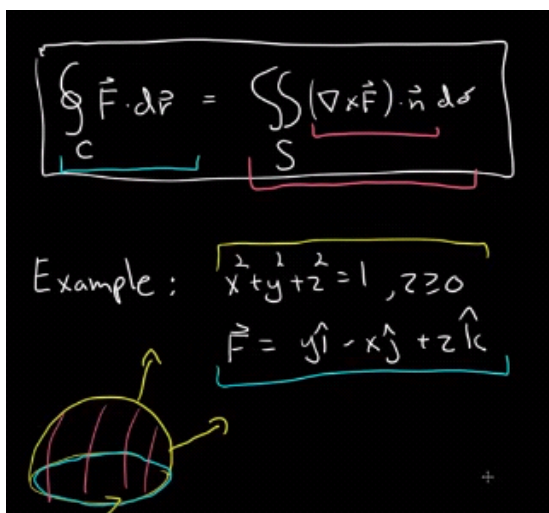 ∮_C F⃗ · dr⃗ = ∬_S (∇ × F⃗) · n⃗ dσ
Example : x² + y² + z² = 1 , z ≥ 0
F⃗ = yî - xĵ + zk̂